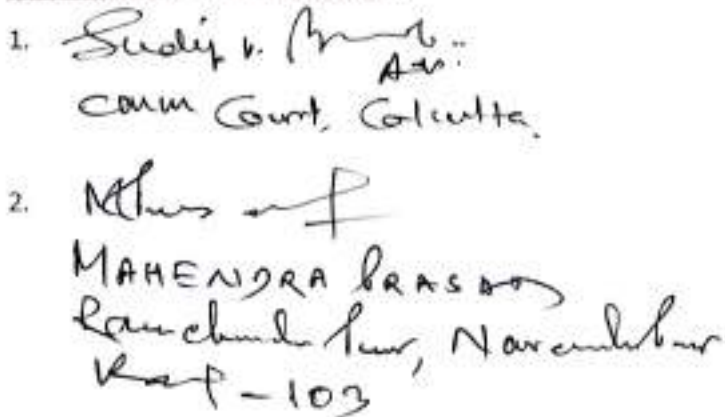 1. Sudip
Adv.
Comm Court, Calcutta.
2.
MAHENDRA PRASAD
Ramchandrapur, Narendrapur
Kol - 103